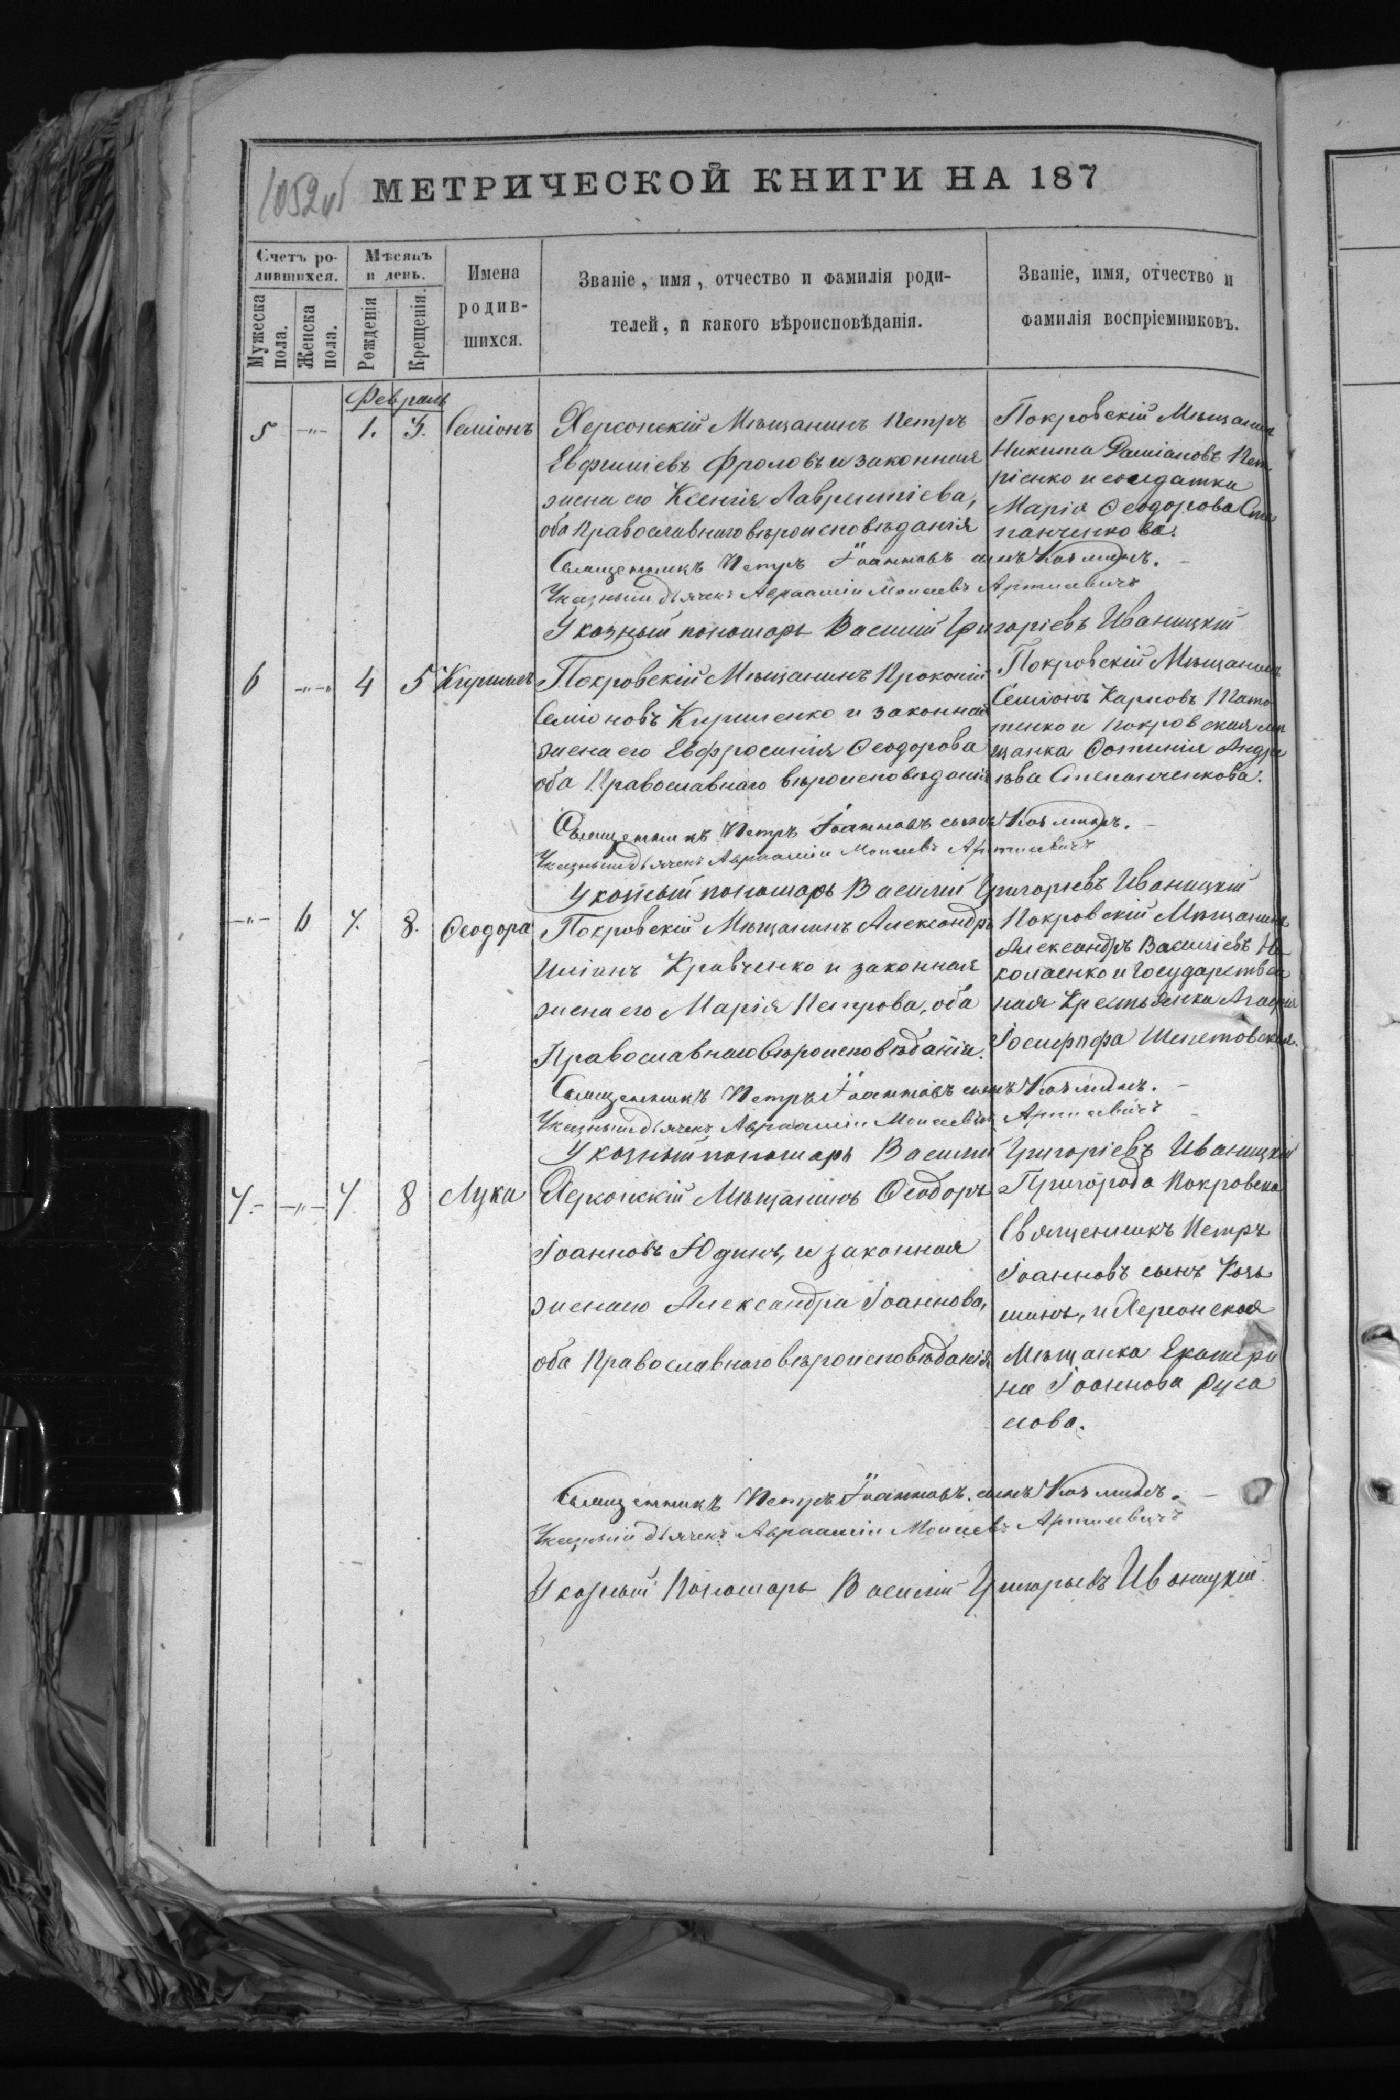 1052 об
МЕТРИЧЕСКОЙ КНИГИ НА 187
Счетъ ро-
дившихся.
Мѣсяцъ
и день.
Мужеска
пола.
Женска
пола.
Рожденія
Крещенія.
Имена
родив-
шихся.
Званіе, имя, отчество и фамилія роди-
телей, и какого вѣроисповѣданія.
Званіе, имя, отчество и
фамилія воспріемниковъ.
Февраль
5 -"- 1. 3. Семіонъ
Херсонскій Мѣщанинъ Петръ
Евфиміевъ Фроловъ и законная
жена его Ксенія Лаврентіева,
оба Православнаго вѣроисповѣданія
Покровскій Мѣщанинъ
Никита Даміановъ Пет
рієнко и солдатка
Марія Ѳеодорова Сте
панченкова.
Священникъ Петръ Іоанновъ сынъ Козминъ.
Указный дьячекъ Авраамій Моисеевъ Артисевичъ
Указный пономарь Василій Григоріевъ Иваницкій
6 -"- 4 5 Кириллъ
Покровскій Мѣщанинъ Прокопій
Семіоновъ Кириленко и законная
жена его Евфросинія Ѳеодорова
оба Православнаго вѣроисповѣданія
Покровскій Мѣщанинъ
Семіонъ Карповъ
тенко и покровская мѣ
щанка Фотинія Андре
ѣва Степанченкова.
Священникъ Петръ Іоанновъ сынъ Козминъ.
Указный дьячекъ Авраамій Моисеевъ Артисевичъ
Указный пономарь Василій Григоріевъ Иваницкій
-"- 6 7. 8. Ѳеодора
Покровскій Мѣщанинъ Александръ
Иліинъ Кравченко и законная
жена его Марія Петрова, оба
Православнаго вѣроисповѣданія.
Покровскій Мѣщанинъ
Александръ Василіевъ Ни
колаенко и Государствен
ная Крестьянка Агафія
Іосифова Шепетовская.
Священникъ Петръ Іоанновъ сынъ Козминъ.
Указный дьячекъ Авраамій Моисеевъ Артисевичъ
Указный пономарь Василій Григоріевъ Иваницкій
7.- -"- 7 8 Лука
Херсонскій Мѣщанинъ Ѳеодоръ
Іоанновъ Юдинъ, и законная
жена его Александра Іоаннова,
оба Православнаго вѣроисповѣданія
Пригорода Покровска
Священникъ Петръ
Іоанновъ сынъ Козь
минъ, и Херсонская
Мѣщанка Екатери
на Іоаннова Руса
лова.
Священникъ Петръ Іоанновъ сынъ Козминъ.
Указный дьячекъ Авраамій Моисеевъ Артисевичъ
Указный Пономарь Василій Григорьевъ Иваницкій.